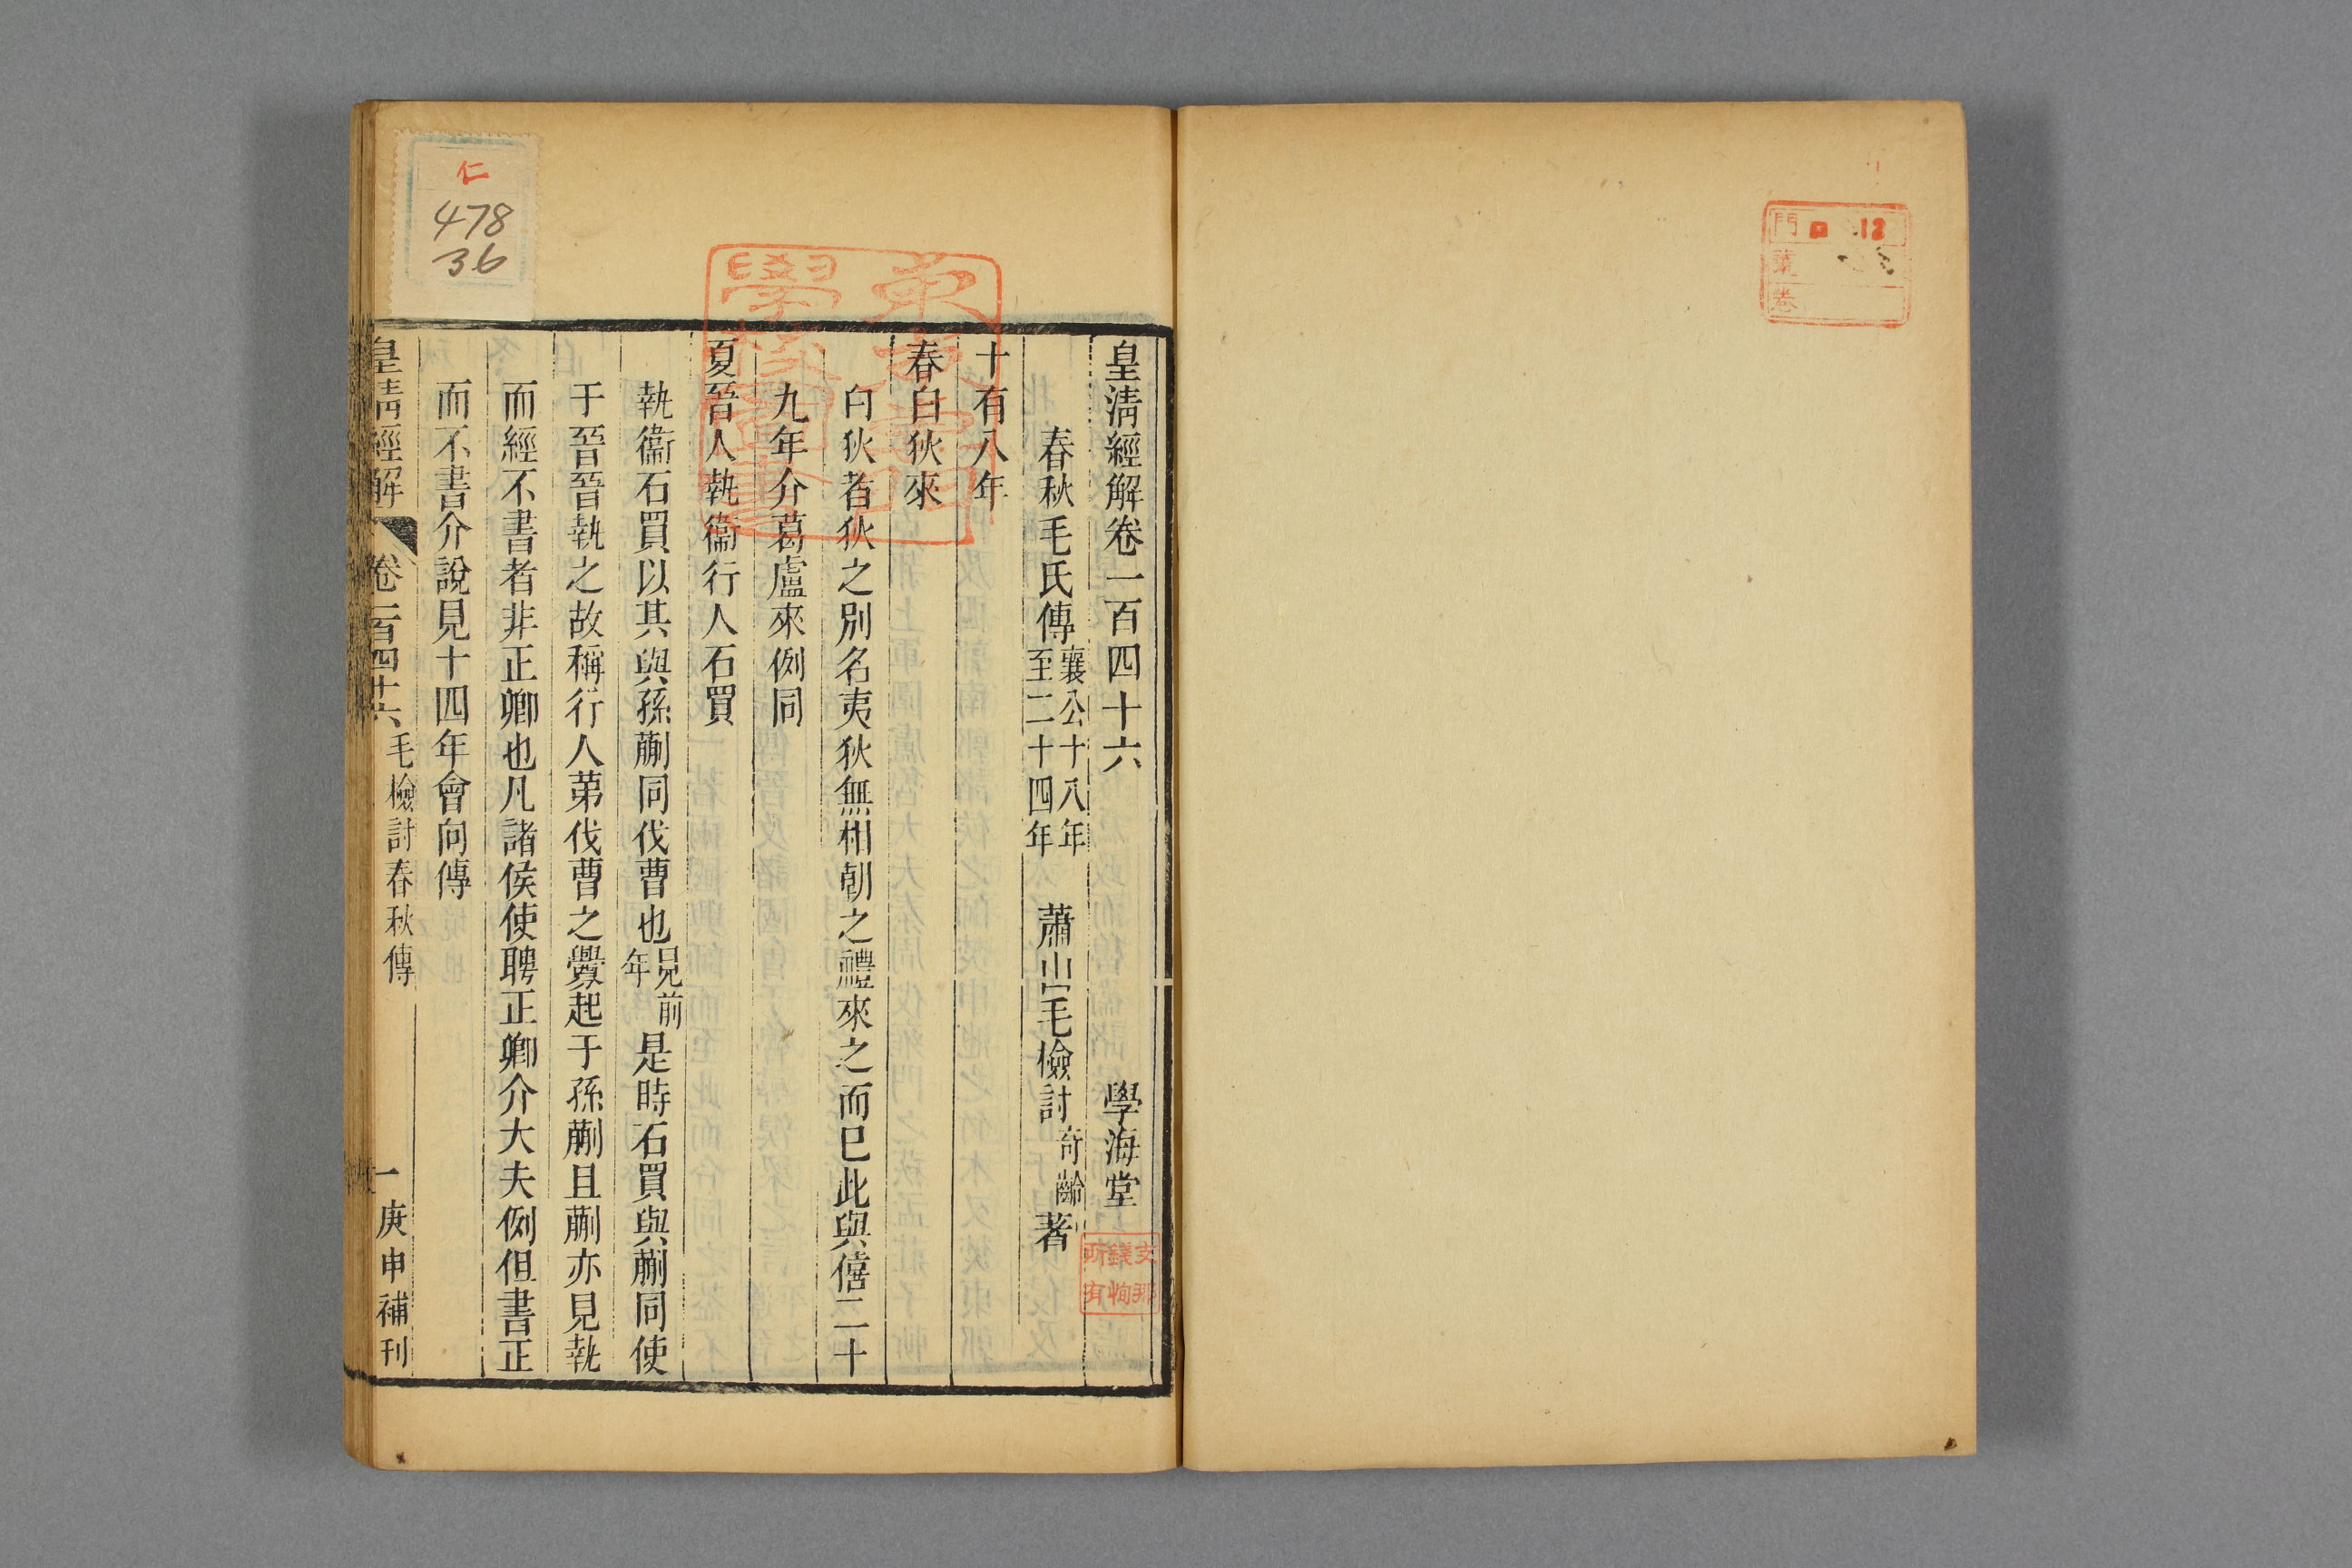 門 12
類
卷
皇清經解卷一百四十六 學海堂
春秋毛氏傳襄公十八年至二十四年 蕭山毛檢討奇齡著
十有八年
春白狄來
白狄者狄之別名夷狄無相朝之禮來之而已此與僖二十
九年介葛盧來例同
夏晉人執衞行人石買
執衞石買以其與孫蒯同伐曹也見前年是時石買與蒯同使
于晉晉執之故稱行人第伐曹之釁起于孫蒯且蒯亦見執
而經不書者非正卿也凡諸侯使聘正卿介大夫例但書正
而不書介說見十四年會向傳
皇清經解 卷一百四十六 毛檢討春秋傳 一 庚申補刊
仁
478
36